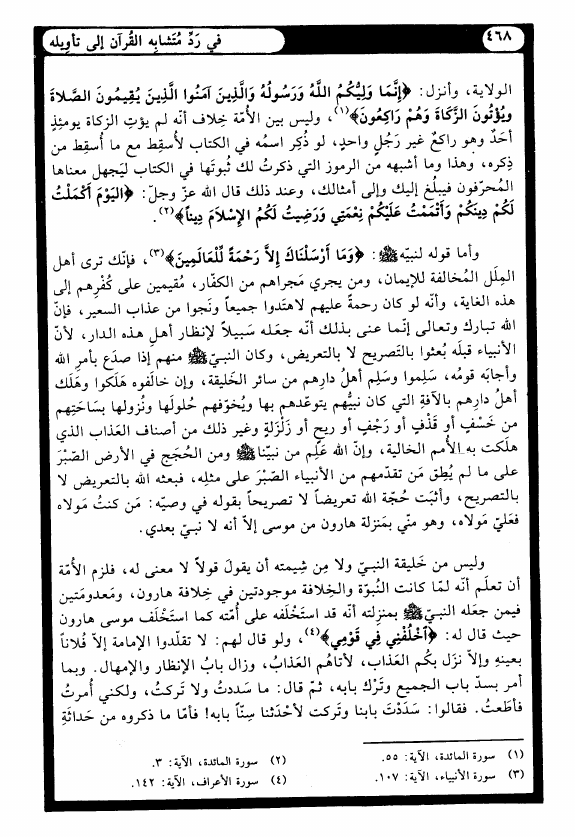 ٤٦٨
في رَدِّ مُتَشابِه القُرآن إلى تأوِيله
الولاية، وأنزل: ﴿إِنَّمَا وَلِيُّكُمُ اللَّهُ وَرَسُولُهُ وَالَّذِينَ آمَنُوا الَّذِينَ يُقِيمُونَ الصَّلاةَ
وَيُؤْتُونَ الزَّكَاةَ وَهُمْ رَاكِعُونَ﴾(١)، وليس بين الأمّة خِلاف أنّه لم يؤتِ الزكاة يومئِذٍ
أحَدٌ وهو راكعٌ غير رَجُلٍ واحدٍ، لو ذُكِر اسمُه في الكتاب لأسقِط مع ما أُسقِط من
ذِكره، وهذا وما أشبهه من الرموز التي ذكرتُ لك ثُبوتَها في الكتاب ليَجهل معناها
المُحرّفون فيبلُغ إليك وإلى أمثالك، وعند ذلك قال الله عزّ وجلّ: ﴿اليَوْمَ أَكْمَلْتُ
لَكُمْ دِينَكُمْ وَأَتْمَمْتُ عَلَيْكُمْ نِعْمَتِي وَرَضِيتُ لَكُمُ الإِسْلامَ دِيناً﴾(٢).
وأما قوله لنبيّه ﷺ: ﴿وَمَا أَرْسَلْنَاكَ إِلاَّ رَحْمَةً لِّلْعَالَمِينَ﴾(٣)، فإنّك ترى أهل
المِلَل المُخالفة للإيمان، ومن يجري مَجراهم من الكفّار، مُقيمين على كُفْرِهم إلى
هذه الغاية، وأنّه لو كان رحمةً عليهم لاهتَدوا جميعاً ونَجوا من عذاب السعير، فإنّ
الله تبارك وتعالى إنّما عنى بذلك أنّه جعَله سَبيلاً لإنظار أهلِ هذه الدار، لأنّ
الأنبياء قبلَه بُعثوا بالتَصريح لا بالتعريض، وكان النبيّ ﷺ منهم إذا صدَع بأمرِ الله
وأجابَه قومُه، سَلِموا وسَلِم أهلُ دارِهم من سائر الخَليقة، وإن خالَفوه هَلَكوا وهَلَك
أهلُ دارِهم بالآفةِ التي كان نبيُّهم يتوعّدهم بها ويُخوّفهم حُلولَها ونُزولها بسَاحَتِهم
من خَسْفٍ أو قَذْفٍ أو رَجْفٍ أو ريح أو زَلْزَلةٍ وغير ذلك من أصناف العَذاب الذي
هلَكت به الأُمم الخالية، وإنّ الله عَلِم من نبيّنا ﷺ ومن الحُجَج في الأرض الصَّبْرَ
على ما لم يُطِق مَن تقدّمهم من الأنبياء الصَّبْرَ على مثلِه، فبعثه الله بالتعريض لا
بالتصريح، وأثبَت حُجّة الله تعريضاً لا تصريحاً بقوله في وصيّه: مَن كنتُ مَولاه
فعَليّ مَولاه، وهو منّي بمَنزلة هارون من موسى إلاّ أنه لا نبيّ بعدي.
وليس من خَليقة النبيّ ولا مِن شِيمته أن يقولَ قولاً لا معنى له، فلزم الأُمّة
أن تعلَم أنّه لمّا كانت النُبوّة والخِلافة موجودتين في خِلافة هارون، ومَعدومَتين
فيمن جعَله النبيّ ﷺ بمنزلته أنّه قد استَخْلَفه على أُمّته كما استَخْلَف موسى هارون
حيث قال له: ﴿اَخْلُفْنِي فِي قَوْمِي﴾(٤)، ولو قال لهم: لا تقلّدوا الإمامة إلاّ فُلاناً
بعينهِ وإلاّ نزَل بكُم العَذاب، لأتاهُم العَذابُ، وزال بابُ الإنظار والإمهال. وبما
أمر بسدّ باب الجميع وتَرْك بابه، ثمّ قال: ما سَددتُ ولا تَركتُ، ولكني أُمرتُ
فأطَعتُ. فقالوا: سَدَدْتَ بابنا وتركت لأحْدَثنا سِنّاً بابه! فأمّا ما ذكروه من حَداثةِ
(١) سورة المائدة، الآية: ٥٥.
(٢) سورة المائدة، الآية: ٣.
(٣) سورة الأنبياء، الآية: ١٠٧.
(٤) سورة الأعراف، الآية: ١٤٢.